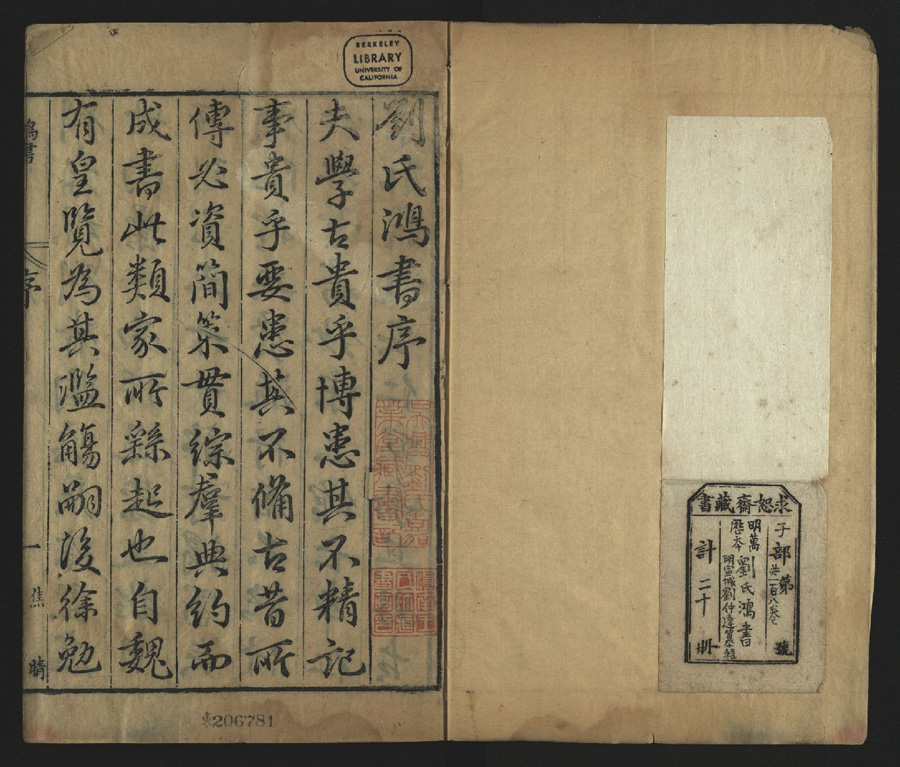 求恕齋藏書
子部第號
共一百八卷
明萬
曆本
劉氏鴻書
明宣城劉仲達纂輯
計二十冊
BERKELEY
LIBRARY
UNIVERSITY OF
CALIFORNIA
劉氏鴻書序
夫學古貴乎博患其不精記
事貴乎要患其不備古昔所
傳必資簡策貫綜羣典約而
成書此類家所繇起也自魏
有皇覽為其濫觴嗣後徐勉
鴻書
序
一
焦
晴
206781